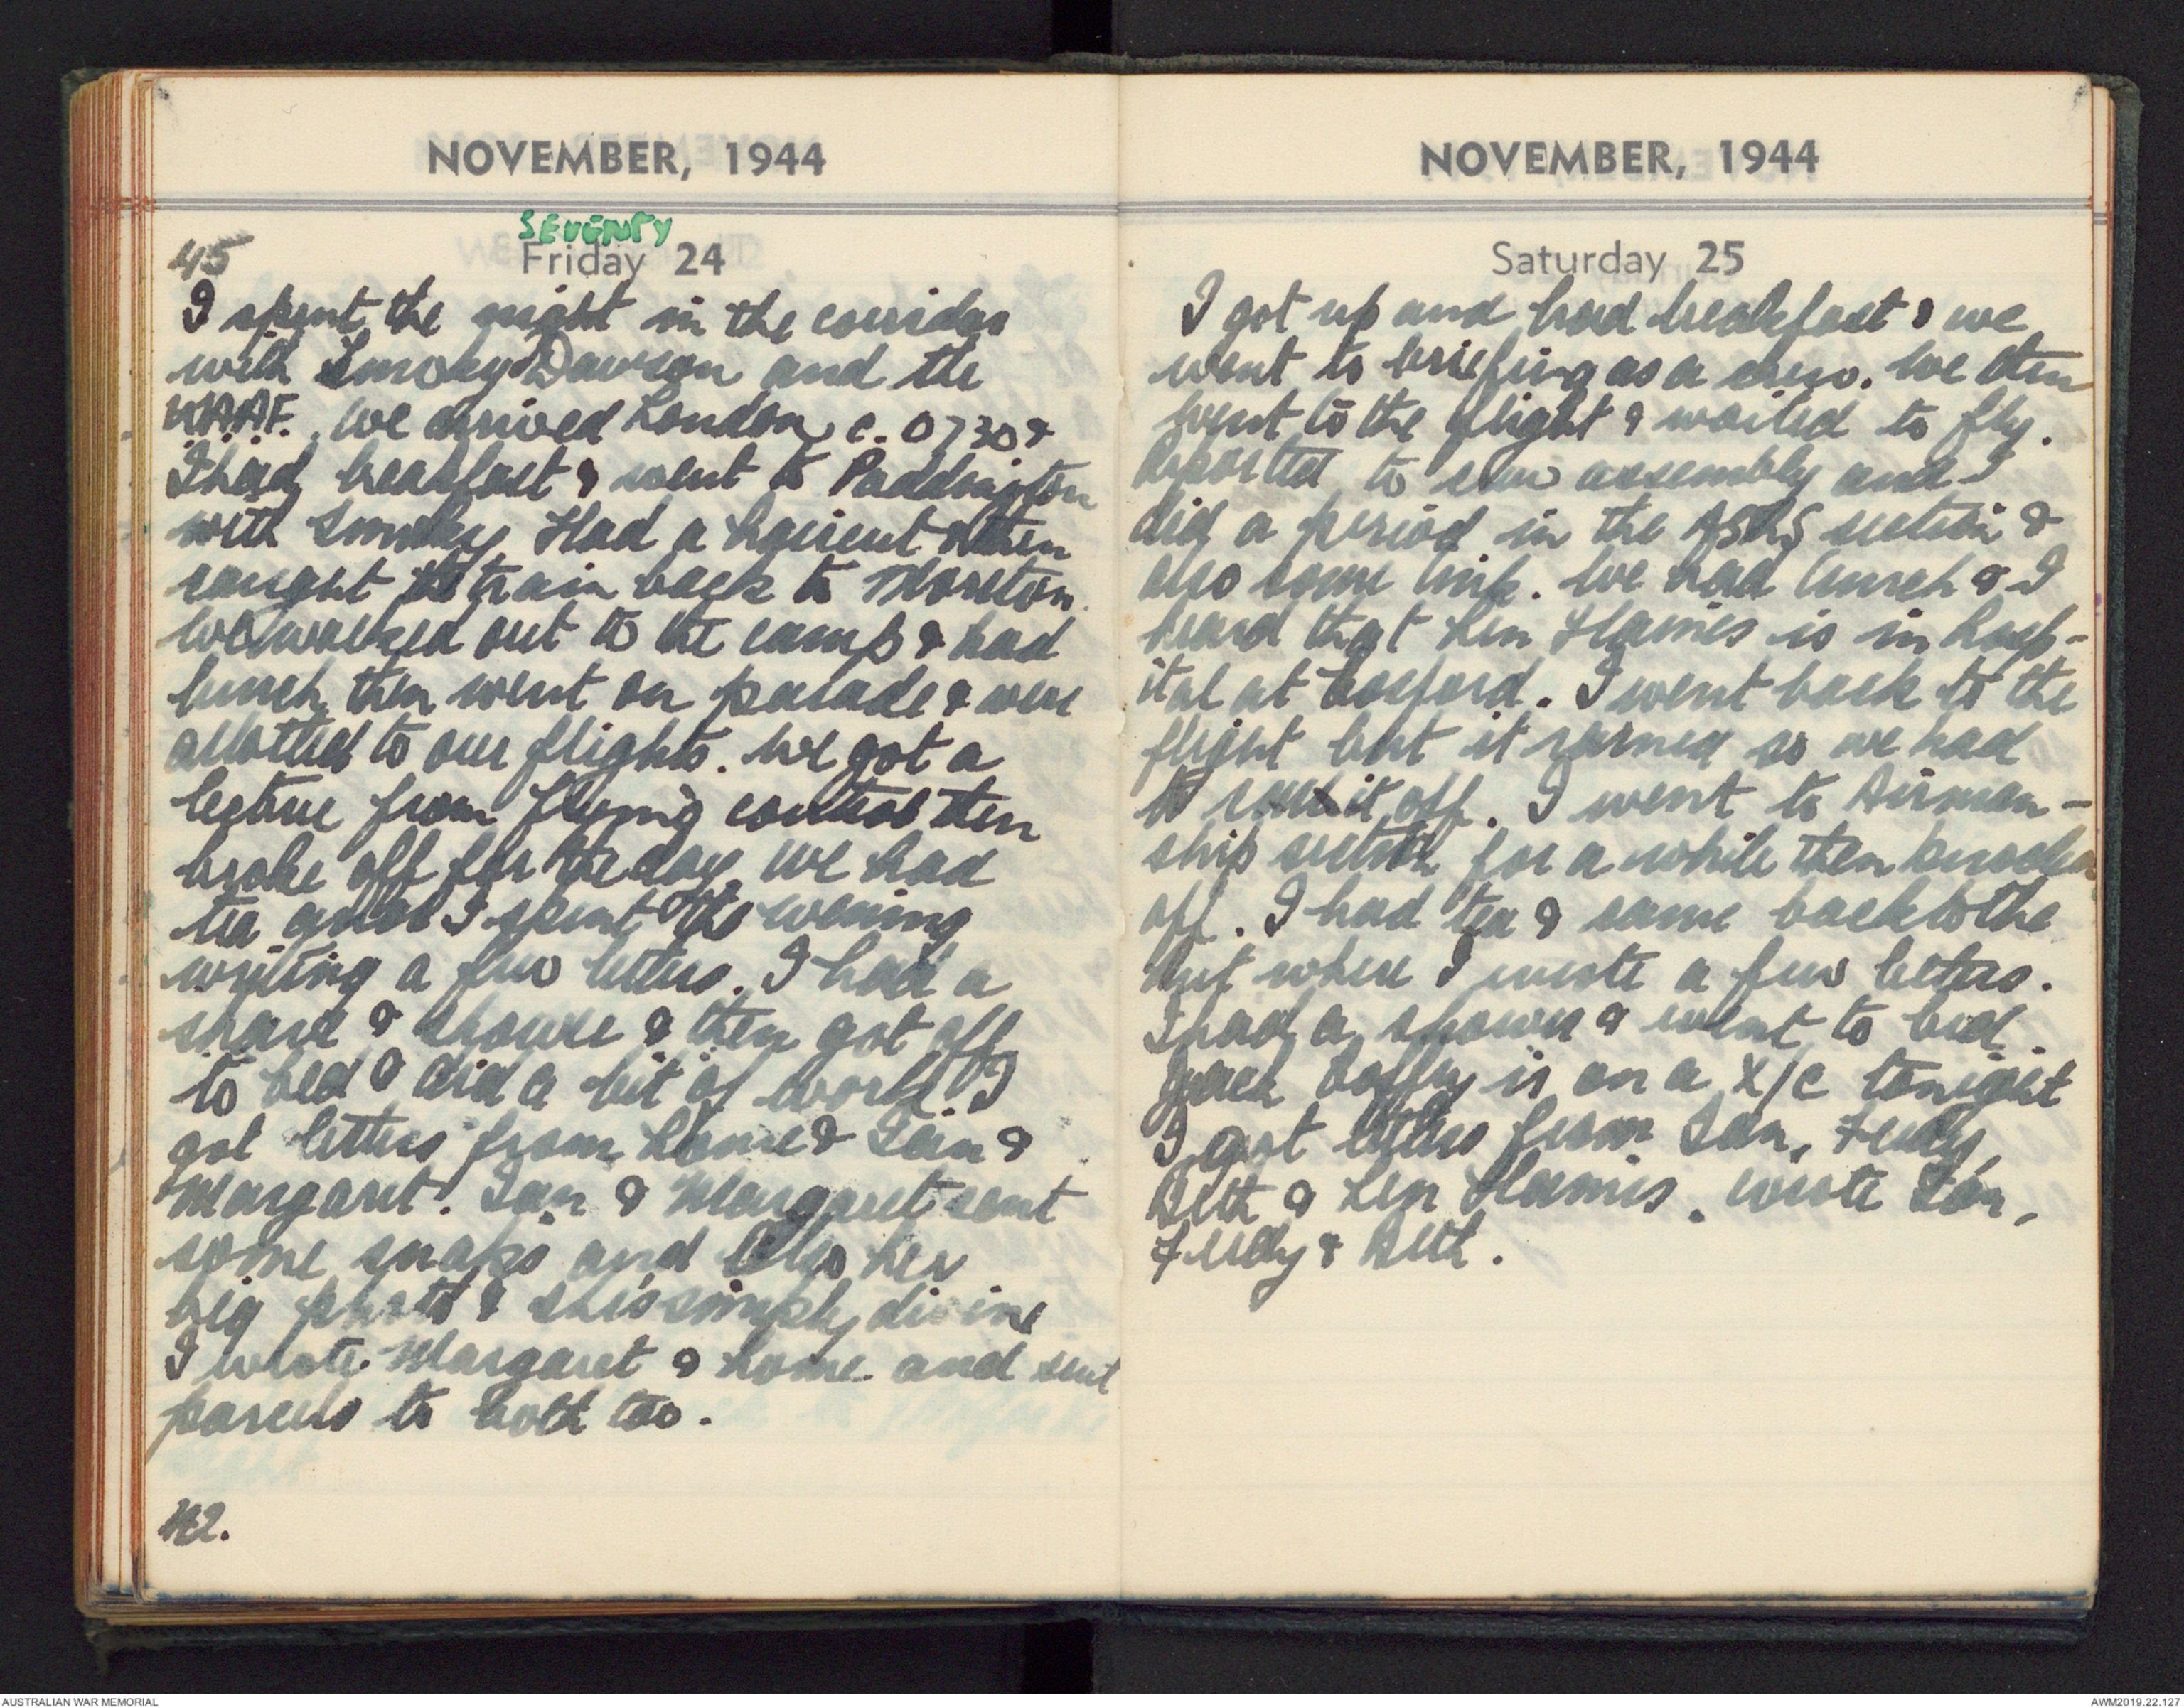 NOVEMBER, 1944
SEVENTY
45
Friday 24
I spent the night in the corridor
with Smoky Dawson and the
WAAF. We arrived London c. 0730 &
I had breakfast & went to Paddington
with Smoky. Had a haircut & then
caught the train back to Moreton.
We walked out to the camp & had
lunch then went on parade & were
allotted to our flights. We got a
lecture from flying control then
broke off for the day. We had
tea and I spent the evening
writing a few letters. I had a
shave & shower & then got off
to bed & did a bit of work. I
got letters from home & Ian &
Margaret. Ian & Margaret sent
some snaps and also her
big photo & she's simply divine
I wrote Margaret & home and sent
parcels to both too.
42.
NOVEMBER, 1944
Saturday 25
I got up and had breakfast & we
went to briefing as a crew. We then
went to the flight & waited to fly.
Reported to crew assembly and I
did a period in the section &
also some link. We had lunch & I
heard that Ken Haines is in hosp-
ital at Cosford. I went back to the
flight but it rained so we had
to it off. I went to Airman-
ship section for a while then knocked
off. I had tea & came back to the
hut where I wrote a few letters.
I had a shower & went to bed.
Jack is on a X/C tonight
I got letters from Ian,
Beth & Ken Haines. Wrote Ian,
& Beth.
AUSTRALIAN WAR MEMORIAL
AWM2019.22.127